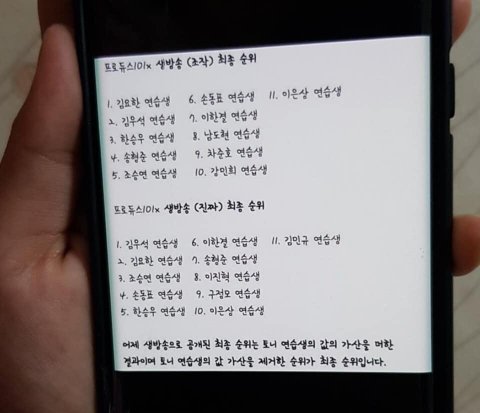 프로듀스101x 생방송 (조작) 최종 순위
1. 김요한 연습생 6. 손동표 연습생 11. 이은상 연습생
2. 김우석 연습생 7. 이한결 연습생
3. 한승우 연습생 8. 남도현 연습생
4. 송형준 연습생 9. 차준호 연습생
5. 조승연 연습생 10. 강민희 연습생
프로듀스101x 생방송 (진짜) 최종 순위
1. 김우석 연습생 6. 이한결 연습생 11. 김민규 연습생
2. 김요한 연습생 7. 송형준 연습생
3. 조승연 연습생 8. 이진혁 연습생
4. 손동표 연습생 9. 구정모 연습생
5. 한승우 연습생 10. 이은상 연습생
어제 생방송으로 공개된 최종 순위는 토니 연습생의 값의 가산을 더한
결과이며 토니 연습생의 값 가산을 제거한 순위가 최종 순위입니다.